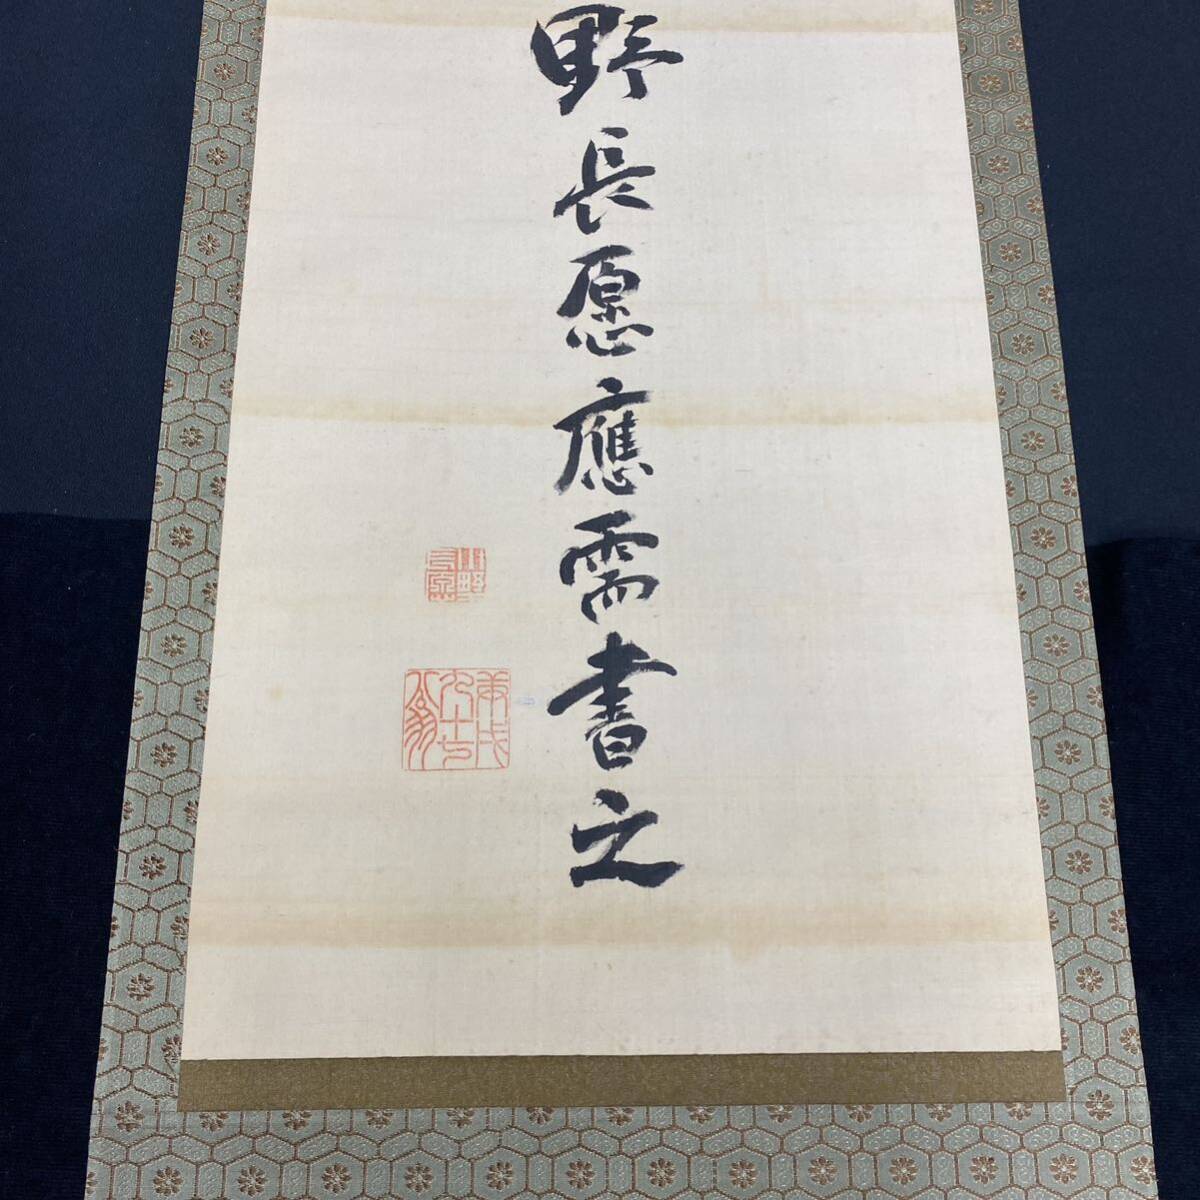 野長愿應需書之